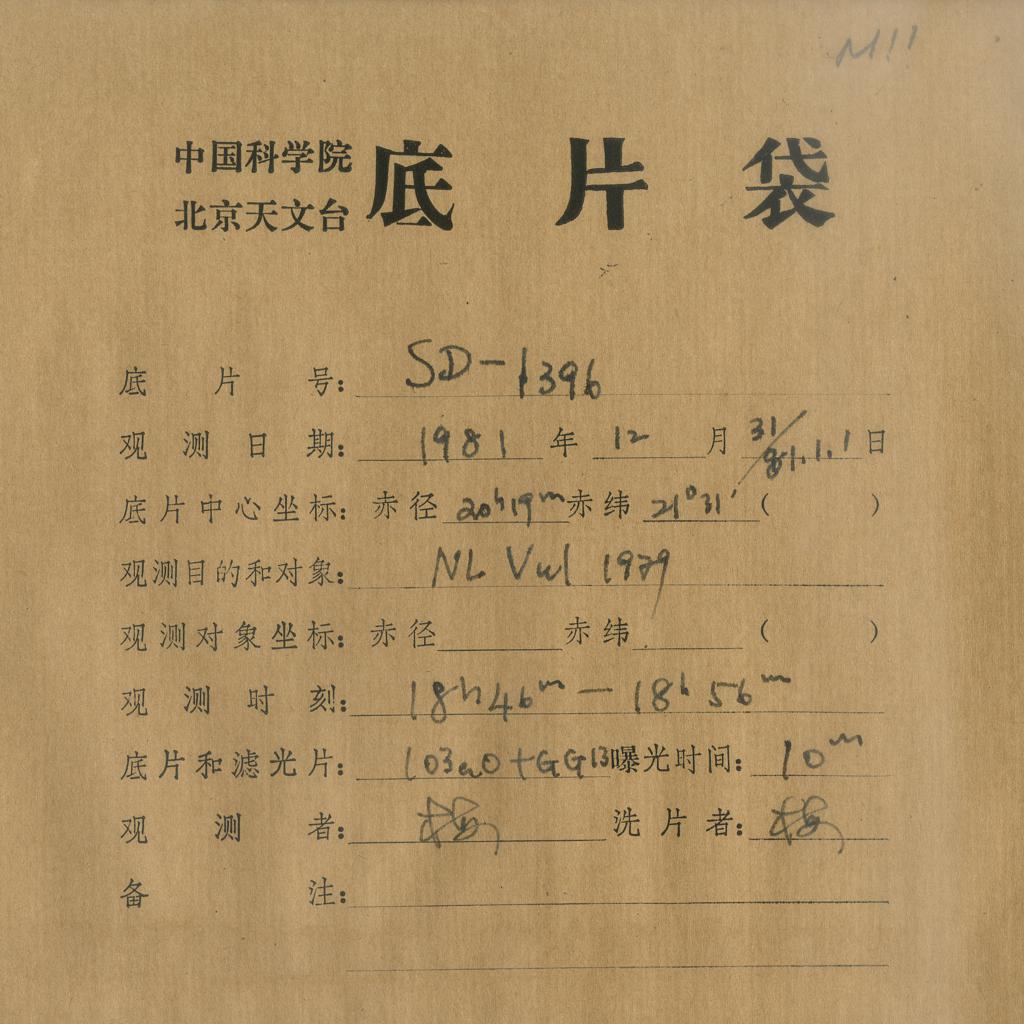 M11
中国科学院
北京天文台
底片袋
底片号: SD-1396
观测日期: 1981 年 12 月 31/82.1.1 日
底片中心坐标: 赤径 20h19m 赤纬 21°31′ ( )
观测目的和对象: NL Vul 1979
观测对象坐标: 赤径 赤纬 ( )
观测时刻: 18h46m — 18h56m
底片和滤光片: 103aO+GG13 曝光时间: 10m
观测者: 梅 洗片者: 梅
备注: